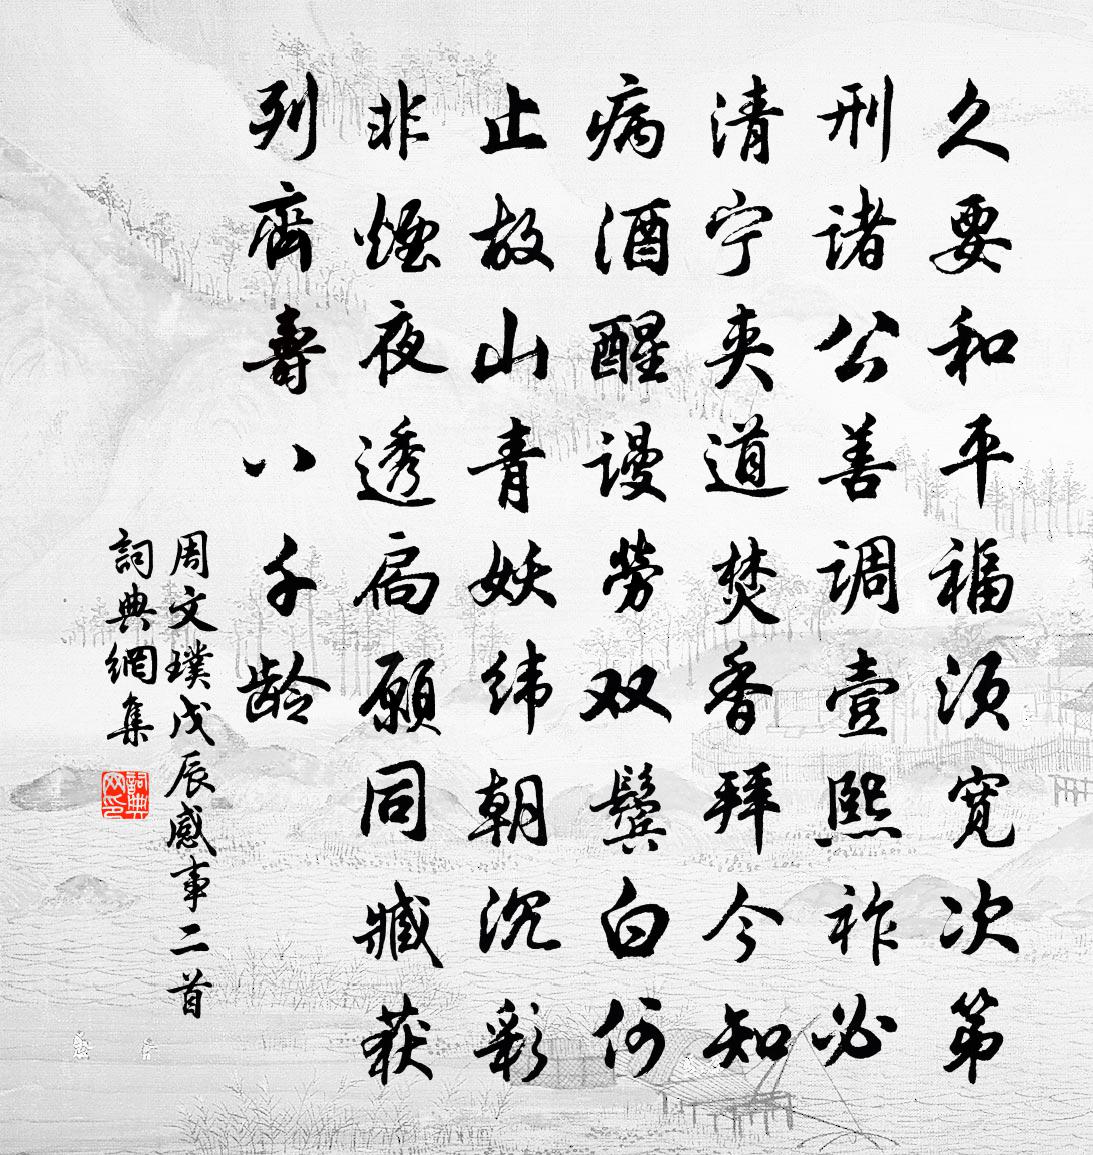 久要和平福须宽次第
刑诸公善调壹熙祚必
清宁夹道焚香拜今知
病酒醒谩劳双鬓白何
止故山青妖纬朝沉彩
非煙夜透扃愿同臧获
列齊壽八千龄
周文璞戊辰感事二首
詞典網集
詞典网印